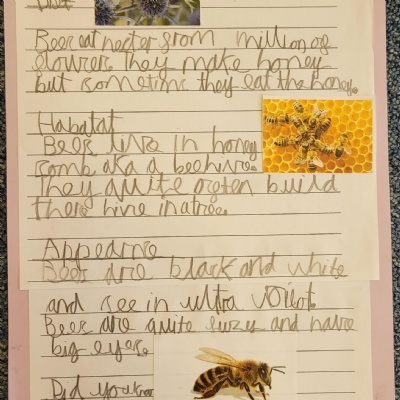 Diet
Bees eat necter from million of
flowers they make honey
but sometime they eat the honey.
Habatat
Bees live in honey
comb aka a beehive.
They quite ogten build
there hive in a tree.
Appearne
Bees are black and white
and see in ultra vorient
Bees are quite
and have
big eyes.
Did you know